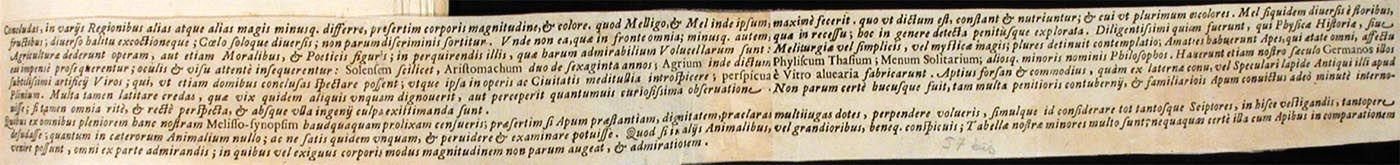 Concludas, in varijs Regionibus alias atque alias magis minusq. differre, præsertim corporis magnitudine, & colore. quod Melligo, & Mel inde ipsum, maximè fecerit. quo vt dictum est, constant & nutriuntur; & cui vt plurimum vcolores. Mel siquidem diuersis è floribus,
fructibus; diuerso halitu excoctioneque; Cœlo soloque diuersis; non parum discriminis sortitur. Vnde non ea, quæ in fronte omnia; minusq. autem, quæ in recessu; hoc in genere detecta penitùsque explorata. Diligentissimi quiam fuerunt, qui Physicæ Historiæ, siue
Agriculturæ dederant operam, aut etiam Moralibus, & Poeticis figuris; in perquirendis illis, quæ harum admirabilium Volucellarum sunt: Meliturgia vel simplicis, vel mysticæ magis; plures detinuit contemplatio; Amatres habuerunt Apes, qui ætate omni, affectu
eas impensè prosequerentur; oculis & visu attentè insequerentur: Solensem scilicet, Aristomachum duo de sexaginta annos; Agrium inde dictum Phyliscum Thasium; Menum Solitarium; aliosq. minoris nominis Philosophos. Hæserunt etiam nostro sæculo Germanos illa
subtilissimos artifices Viros; qui, vt etiam domibus conclusas spectare possent; vtque ipsa in operis ac Ciuitatis meditullia introspicere; perspicua è Vitro aluearia fabricarunt. Aptius forsan & commodius, quàm ex laterna cornu, vel Speculari lapide Antiqui illi apud
Plinium. Multa tamen latitare credas, quæ vix quidem aliquis vnquam dignouerit, aut perceperit quantumuis curiosissima obseruatione. Non parum certè hucusque fuit, tam multa penitioris contubernij, & familiarioris Apum conuictus adeò minutè interno-
uisse; si tamen omnia ritè, & rectè perspecta, & absque vlla ingenij culpa existimanda sunt.
Quibus ex omnibus pleniorem hanc nostram Melisso-synopsim haudquaquam prolixam censueris; præsertim, si Apum præstantiam, dignitatem, præclaras multiiugas dotes, perpendere volueris, simulque id considerare tot tantosque Scriptores, in hisce vestigandis, tantopere
desudasse; quantum in cæterorum Animalium nullo; ac ne satis quidem vnquam, & peruidere & examinare potuisse. Quod si in alijs Animalibus, vel grandioribus, beneq. conspicuis; Tabellæ nostræ minores multo sunt; nequaquam certè illa cum Apibus in comparationem
venire possunt, omni ex parte admirandis; in quibus vel exiguus corporis modus magnitudinem non parum augeat, & admirationem.
57 bis